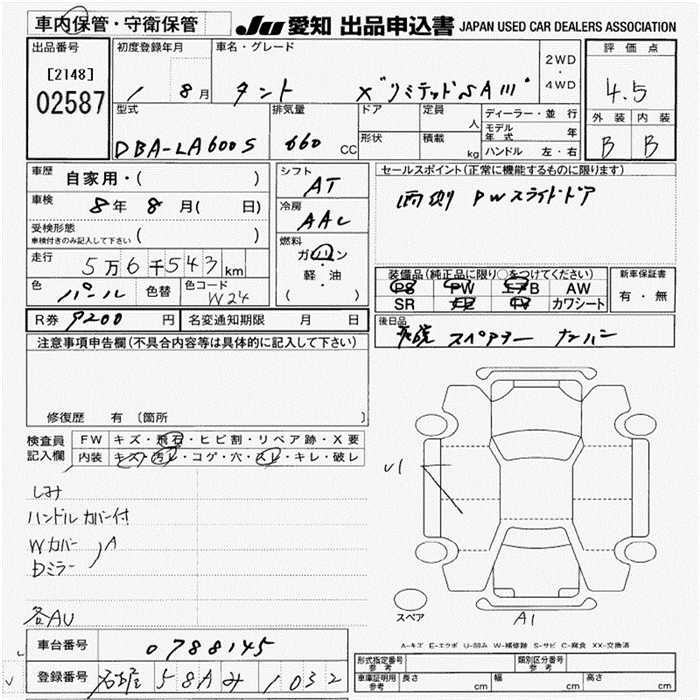 車内保管・守衛保管
JU 愛知 出品申込書 JAPAN USED CAR DEALERS ASSOCIATION
出品番号
[2148]
02587
初度登録年月
1 8月
車名・グレード
タント X"リミテッドSAⅢ"
2WD
・
4WD
評価点
4.5
外装 内装
B B
型式
DBA-LA600S
排気量
660 CC
ドア
形状
定員
人
積載
kg
ディーラー・並行
モデル年式 年
ハンドル 左・右
車歴
自家用・( )
車検
8年 8月( 日)
受検形態
車検付きのみ記入して下さい ( )
走行
5万6千543km
色
パール
色替
色コード
W24
R券 9200 円
名変通知期限 月 日
シフト
AT
冷房
AAC
燃料
ガソリン
・
軽・油
( )
セールスポイント(正常に機能するものに限ります)
両側 PWスライドドア
装備品(純正品に限り○をつけてください)
PS PW エアB AW
SR カワシート
新車保証書
有・無
後日品
スペアキー ナンバー
注意事項申告欄(不具合内容等は具体的に記入して下さい)
修復歴 有 〔箇所 〕
検査員記入欄
FW キズ・飛石・ヒビ割・リペア跡・X要
内装 キズ・汚レ・コゲ・穴・スレ・キレ・破レ
しみ
ハンドルカバー付
Wカバー
Dミラー
A
各AU
U1
A1
スペア
A-キズ E-エクボ U-凹み W-補修跡 S-サビ C-腐食 XX-交換済
車台番号
0788145
登録番号
名古屋 58A み 1032
型式指定番号
参考
類別区分番号
参考
車庫証明用
参考
長さ cm
幅 cm
高さ cm